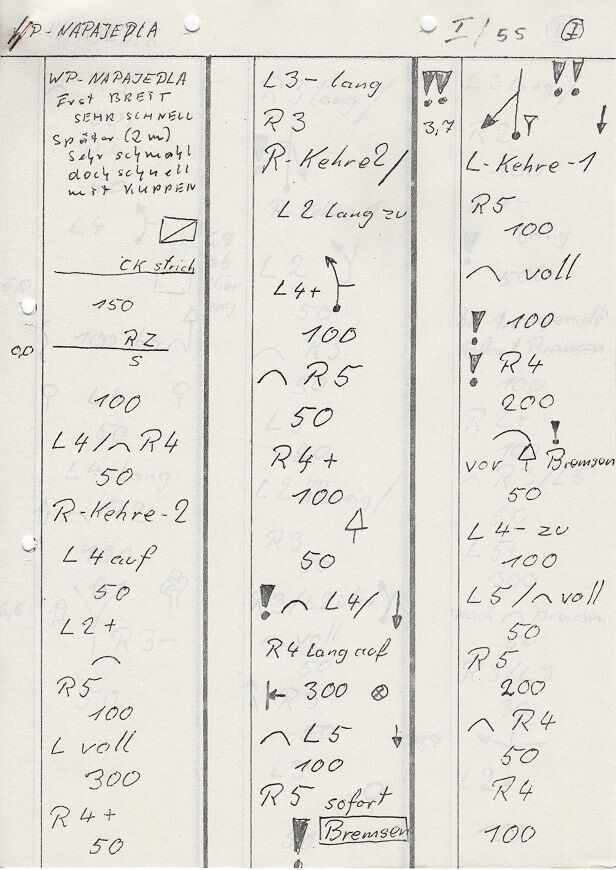 WP-NAPAJEDLA
I/5S
1
WP-NAPAJEDLA
Erst BREIT
SEHR SCHNELL
Später (2m)
Sehr schmahl
doch schnell
mit KUPPEN
CK strich
150
0,0
RZ
S
100
L4/⌒R4
50
R-Kehre-2
L4 auf
50
L2+
⌒
R5
100
L voll
300
R4+
50
L3- lang
R3
R-Kehre2/
L2 lang zu
L4+
100
⌒ R5
50
R4+
100
50
! ⌒ L4/ ↓
R4 lang auf
|← 300 ⊗
⌒ L5 ↓
100
R5 sofort
! Bremsen
!!
3,7
!!
↓
L-Kehre-1
R5
100
⌒ voll
! 100
! R4
200
⌒ !
vor Bremsen
50
L4- zu
100
L5/⌒ voll
50
R5
200
⌒ R4
50
R4
100